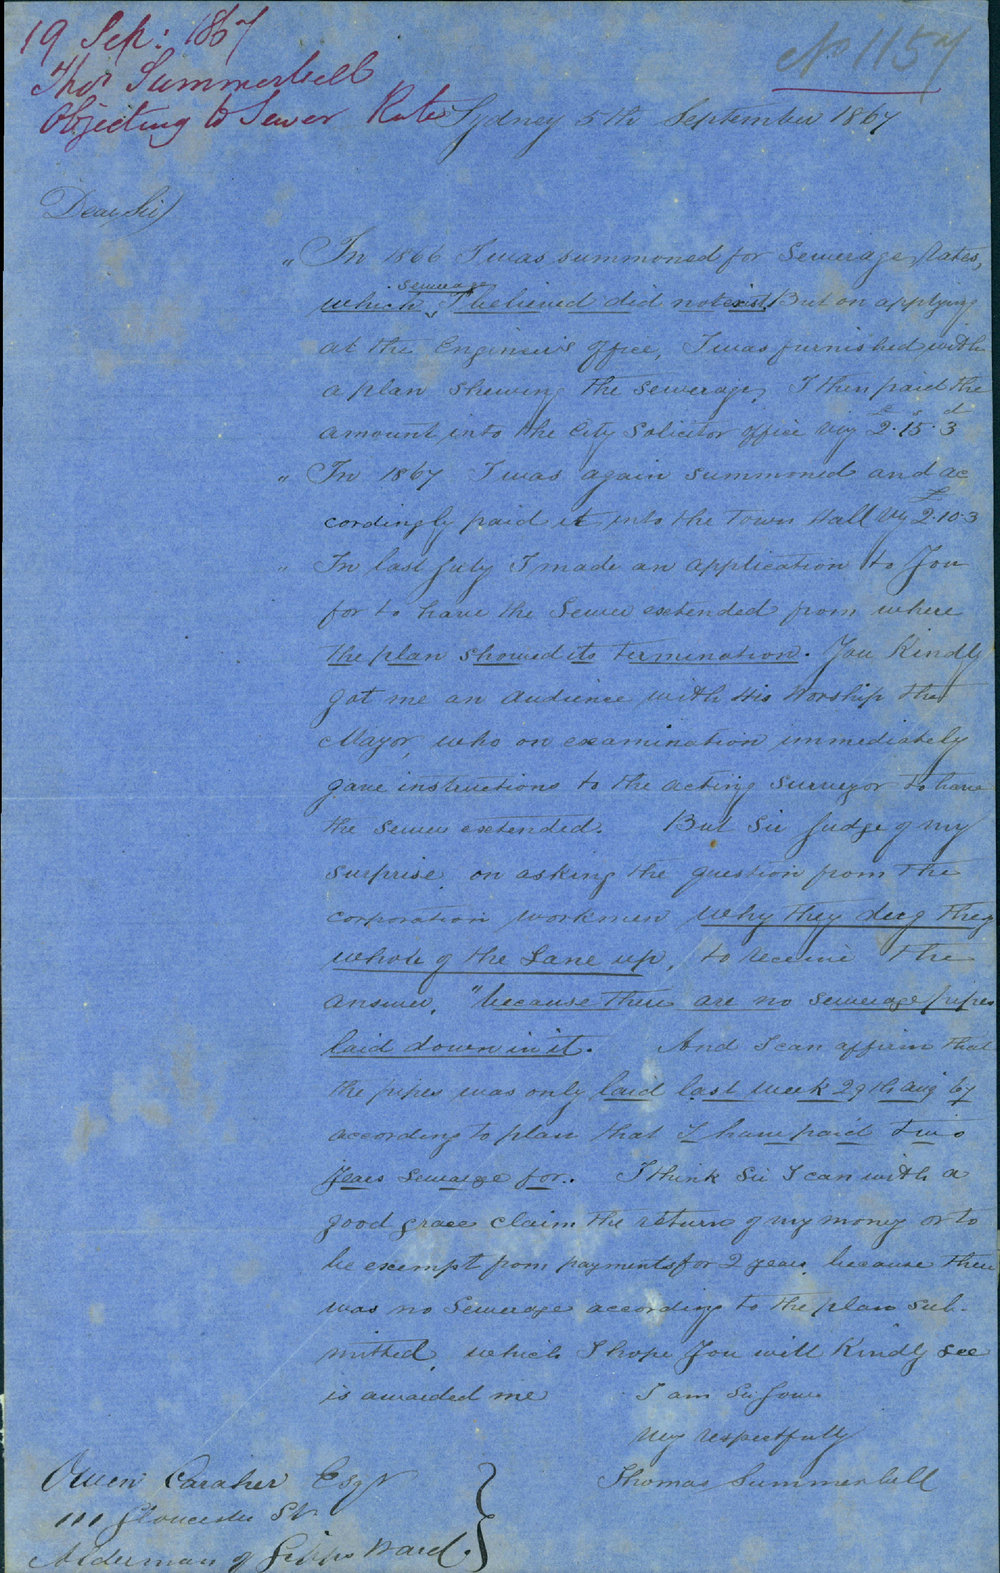 19 Sep: 1867
Thos Summerbell
Objecting to Sewer Rate
No 1157
Sydney 5th September 1867
Dear Sir
" In 1866 I was summoned for Sewerage Rates,
which sewerage I believed did not exist, But on applying
at the Engineer's Office, I was furnished with
a plan shewing the sewerage, I then paid the
amount into the City Solicitor Office viz £2.15s.3d
" In 1867 I was again summoned and ac
cordingly paid it into the Town Hall viz £2.10.3
" In last July I made an application to You
for to have the Sewer extended from where
the plan showed its termination. You Kindly
got me an audience with His Worship the
Mayor, who on examination immediately
gave instructions to the acting Surveyor to have
the sewer extended. But Sir Judge of my
surprise on asking the question from the
corporation workmen why they dug the
whole of the Lane up, to receive the
answer, "because there are no sewerage pipes
laid down in it. And I can affirm that
the pipes was only laid last week 29th Aug 67
according to plan that I have paid two
years sewerage for. I think Sir I can with a
good grace claim the return of my money or to
be exempt from payments for 2 years, because there
was no Sewerage according to the plan sub-
mitted, which I hope You will Kindly see
is awarded me I am Sir Your
Very respectfully
Thomas Summerbell
Owen Caraher Esqr
111 Gloucester St
Alderman of Gipps Ward.